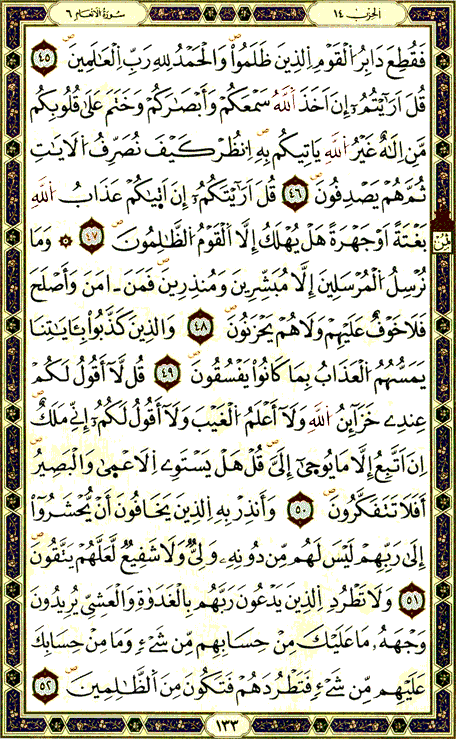 الحزب ١٤
سُورَةُ الْأَنْعَامِ ٦
فَقُطِعَ دَابِرُ الْقَوْمِ الذِينَ ظَلَمُواْ وَالْحَمْدُ لِلهِ رَبِّ الْعَالَمِينَ ٤٥
قُلَ اَرَٰيْتُمُۥٓ إِنَ اَخَذَ اَللَّهُ سَمْعَكُمْ وَأَبْصَارَكُمْ وَخَتَمَ عَلَىٰ قُلُوبِكُم
مَّنِ اِلَٰهٌ غَيْرُ اُللَّهِ يَاتِيكُم بِهِ اِنظُرْ كَيْفَ نُصَرِّفُ اُلَايَٰتِ
ثُمَّ هُمْ يَصْدِفُونَ ٤٦ قُلَ اَرَٰيْتَكُمُۥٓ إِنَ اَتَىٰكُمْ عَذَابُ اُللَّهِ
بَغْتَةً اَوْ جَهْرَةً هَلْ يُهْلَكُ إِلَّا اَلْقَوْمُ الظَّٰلِمُونَ ٤٧ ۞ وَمَا
نُرْسِلُ الْمُرْسَلِينَ إِلَّا مُبَشِّرِينَ وَمُنذِرِينَ فَمَنَ ـ امَنَ وَأَصْلَحَ
فَلَا خَوْفٌ عَلَيْهِمْ وَلَا هُمْ يَحْزَنُونَ ٤٨ وَالذِينَ كَذَّبُواْ بِـَٔايَٰتِنَا
يَمَسُّهُمُ الْعَذَابُ بِمَا كَانُواْ يَفْسُقُونَ ٤٩ قُل لَّآ أَقُولُ لَكُمْ
عِندِے خَزَآئِنُ اُللَّهِ وَلَآ أَعْلَمُ الْغَيْبَ وَلَآ أَقُولُ لَكُمُۥٓ إِنِّے مَلَكٌ
اِنَ اَتَّبِعُ إِلَّا مَا يُوحَىٰٓ إِلَيَّ قُلْ هَلْ يَسْتَوِے اِلَاعْمَىٰ وَالْبَصِيرُ
أَفَلَا تَتَفَكَّرُونَ ٥٠ وَأَنذِرْ بِهِ الذِينَ يَخَافُونَ أَنْ يُّحْشَرُوٓاْ
إِلَىٰ رَبِّهِمْ لَيْسَ لَهُم مِّن دُونِهِۦ وَلِيٌّ وَلَا شَفِيعٌ لَّعَلَّهُمْ يَتَّقُونَ
٥١ وَلَا تَطْرُدِ اِلذِينَ يَدْعُونَ رَبَّهُم بِالْغَدَوٰةِ وَالْعَشِيِّ يُرِيدُونَ
وَجْهَهُۥ مَا عَلَيْكَ مِنْ حِسَابِهِم مِّن شَےْءٍ وَمَا مِنْ حِسَابِكَ
عَلَيْهِم مِّن شَےْءٍ فَتَطْرُدَهُمْ فَتَكُونَ مِنَ اَلظَّٰلِمِينَ ٥٢
١٣٣